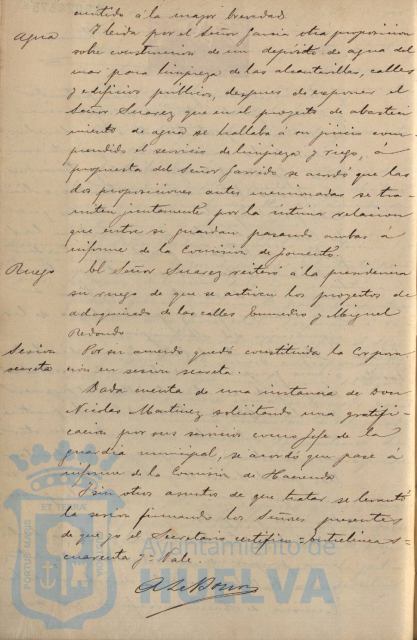 emitido á la mayor brevedad.
Agua Y leida por el Señor Garcia otra proposicion
sobre construccion de un depósito de agua del
mar para limpieza de las alcantarillas, calles
y edificios públicos, despues de exponer el
Señor Suarez que en el proyecto de abasteci
miento de aguas se hallaba á su juicio com
prendido el servicio de limpieza y riego, á
propuesta del Señor Garrido se acordó que las
dos proposiciones antes mencionadas se tra
miten juntamente por la íntima relacion
que entre si guardan pasando ambas á
informe de la Comision de Fomento.
Ruego El Señor Suarez reiteró á la presidencia
su ruego de que se activen los proyectos de
adoquinado de las calles y Miguel
Redondo
Sesion secreta Por su acuerdo quedó constituida la Corpora
cion en sesion secreta.
Dada cuenta de una instancia de Don
Nicolas Martinez solicitando una gratifi
cacion por sus servicios como Jefe de la
guardia municipal, se acordó que pase á
informe de la Comision de Hacienda
Y sin otros asuntos de que tratar se levantó
la sesion firmando los Señores presentes
de que yo el Secretario certifico = Entrelineas =
cuarenta y = Vale.
PORTUS MARIS
ET TERRAE CUSTODIA
Ayuntamiento de
HUELVA